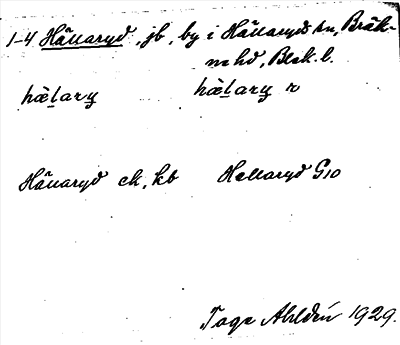 1-4 Hällaryd, jb, by i Hällaryds sn, Bräk-
ne hd, Blek. l.
hæl̲ary̲ hæl̲ary̲ r
Hällaryd ek, kb Hellaryd G10
Tage Ahldén 1929.